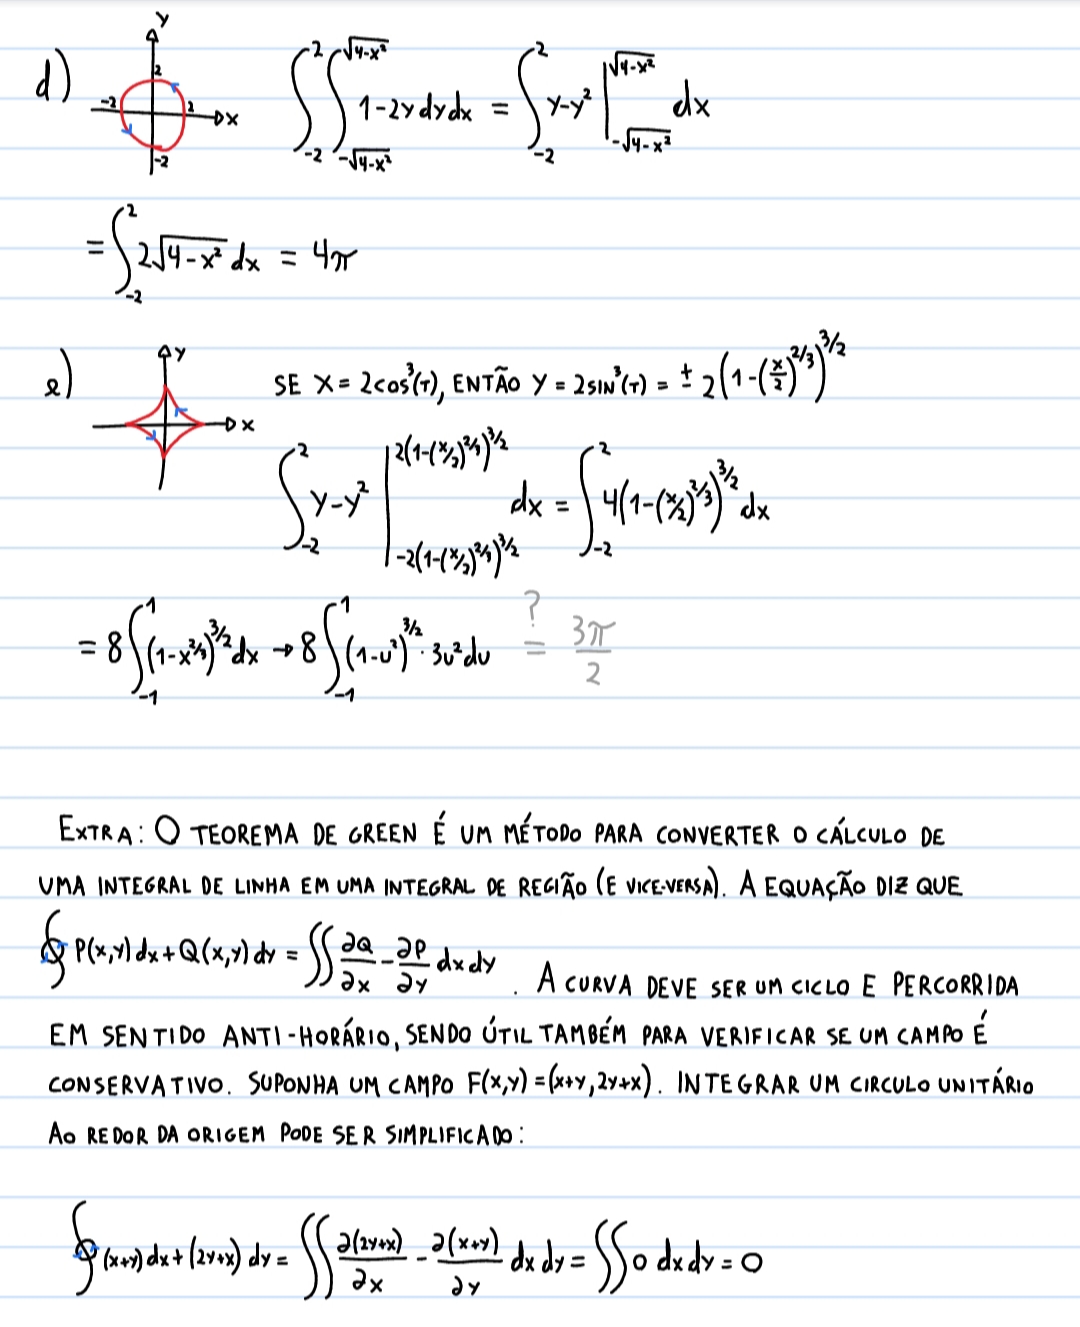 d) y 2 -2 2 x -2 ∫_{-2}^{2} ∫_{-√(4-x²)}^{√(4-x²)} 1-2y dy dx = ∫_{-2}^{2} y-y² |_{-√(4-x²)}^{√(4-x²)} dx
= ∫_{-2}^{2} 2√(4-x²) dx = 4π
e) y x SE X = 2cos³(T), ENTÃO Y = 2SIN³(T) = ± 2(1-(x/2)^{2/3})^{3/2}
∫_{-2}^{2} y-y² |_{-2(1-(x/2)^{2/3})^{3/2}}^{2(1-(x/2)^{2/3})^{3/2}} dx = ∫_{-2}^{2} 4(1-(x/2)^{2/3})^{3/2} dx
= 8 ∫_{-1}^{1} (1-x^{2/3})^{3/2} dx → 8 ∫_{-1}^{1} (1-u²)^{3/2} · 3u² du ?= 3π/2
EXTRA: O TEOREMA DE GREEN É UM MÉTODO PARA CONVERTER O CÁLCULO DE
UMA INTEGRAL DE LINHA EM UMA INTEGRAL DE REGIÃO (E VICE-VERSA). A EQUAÇÃO DIZ QUE
∮ P(x,y) dx + Q(x,y) dy = ∬ ∂Q/∂x - ∂P/∂y dx dy . A CURVA DEVE SER UM CICLO E PERCORRIDA
EM SENTIDO ANTI-HORÁRIO, SENDO ÚTIL TAMBÉM PARA VERIFICAR SE UM CAMPO É
CONSERVATIVO. SUPONHA UM CAMPO F(x,y) = (x+y, 2y+x). INTEGRAR UM CIRCULO UNITÁRIO
AO REDOR DA ORIGEM PODE SER SIMPLIFICADO:
∮ (x+y) dx + (2y+x) dy = ∬ ∂(2y+x)/∂x - ∂(x+y)/∂y dx dy = ∬ 0 dx dy = 0